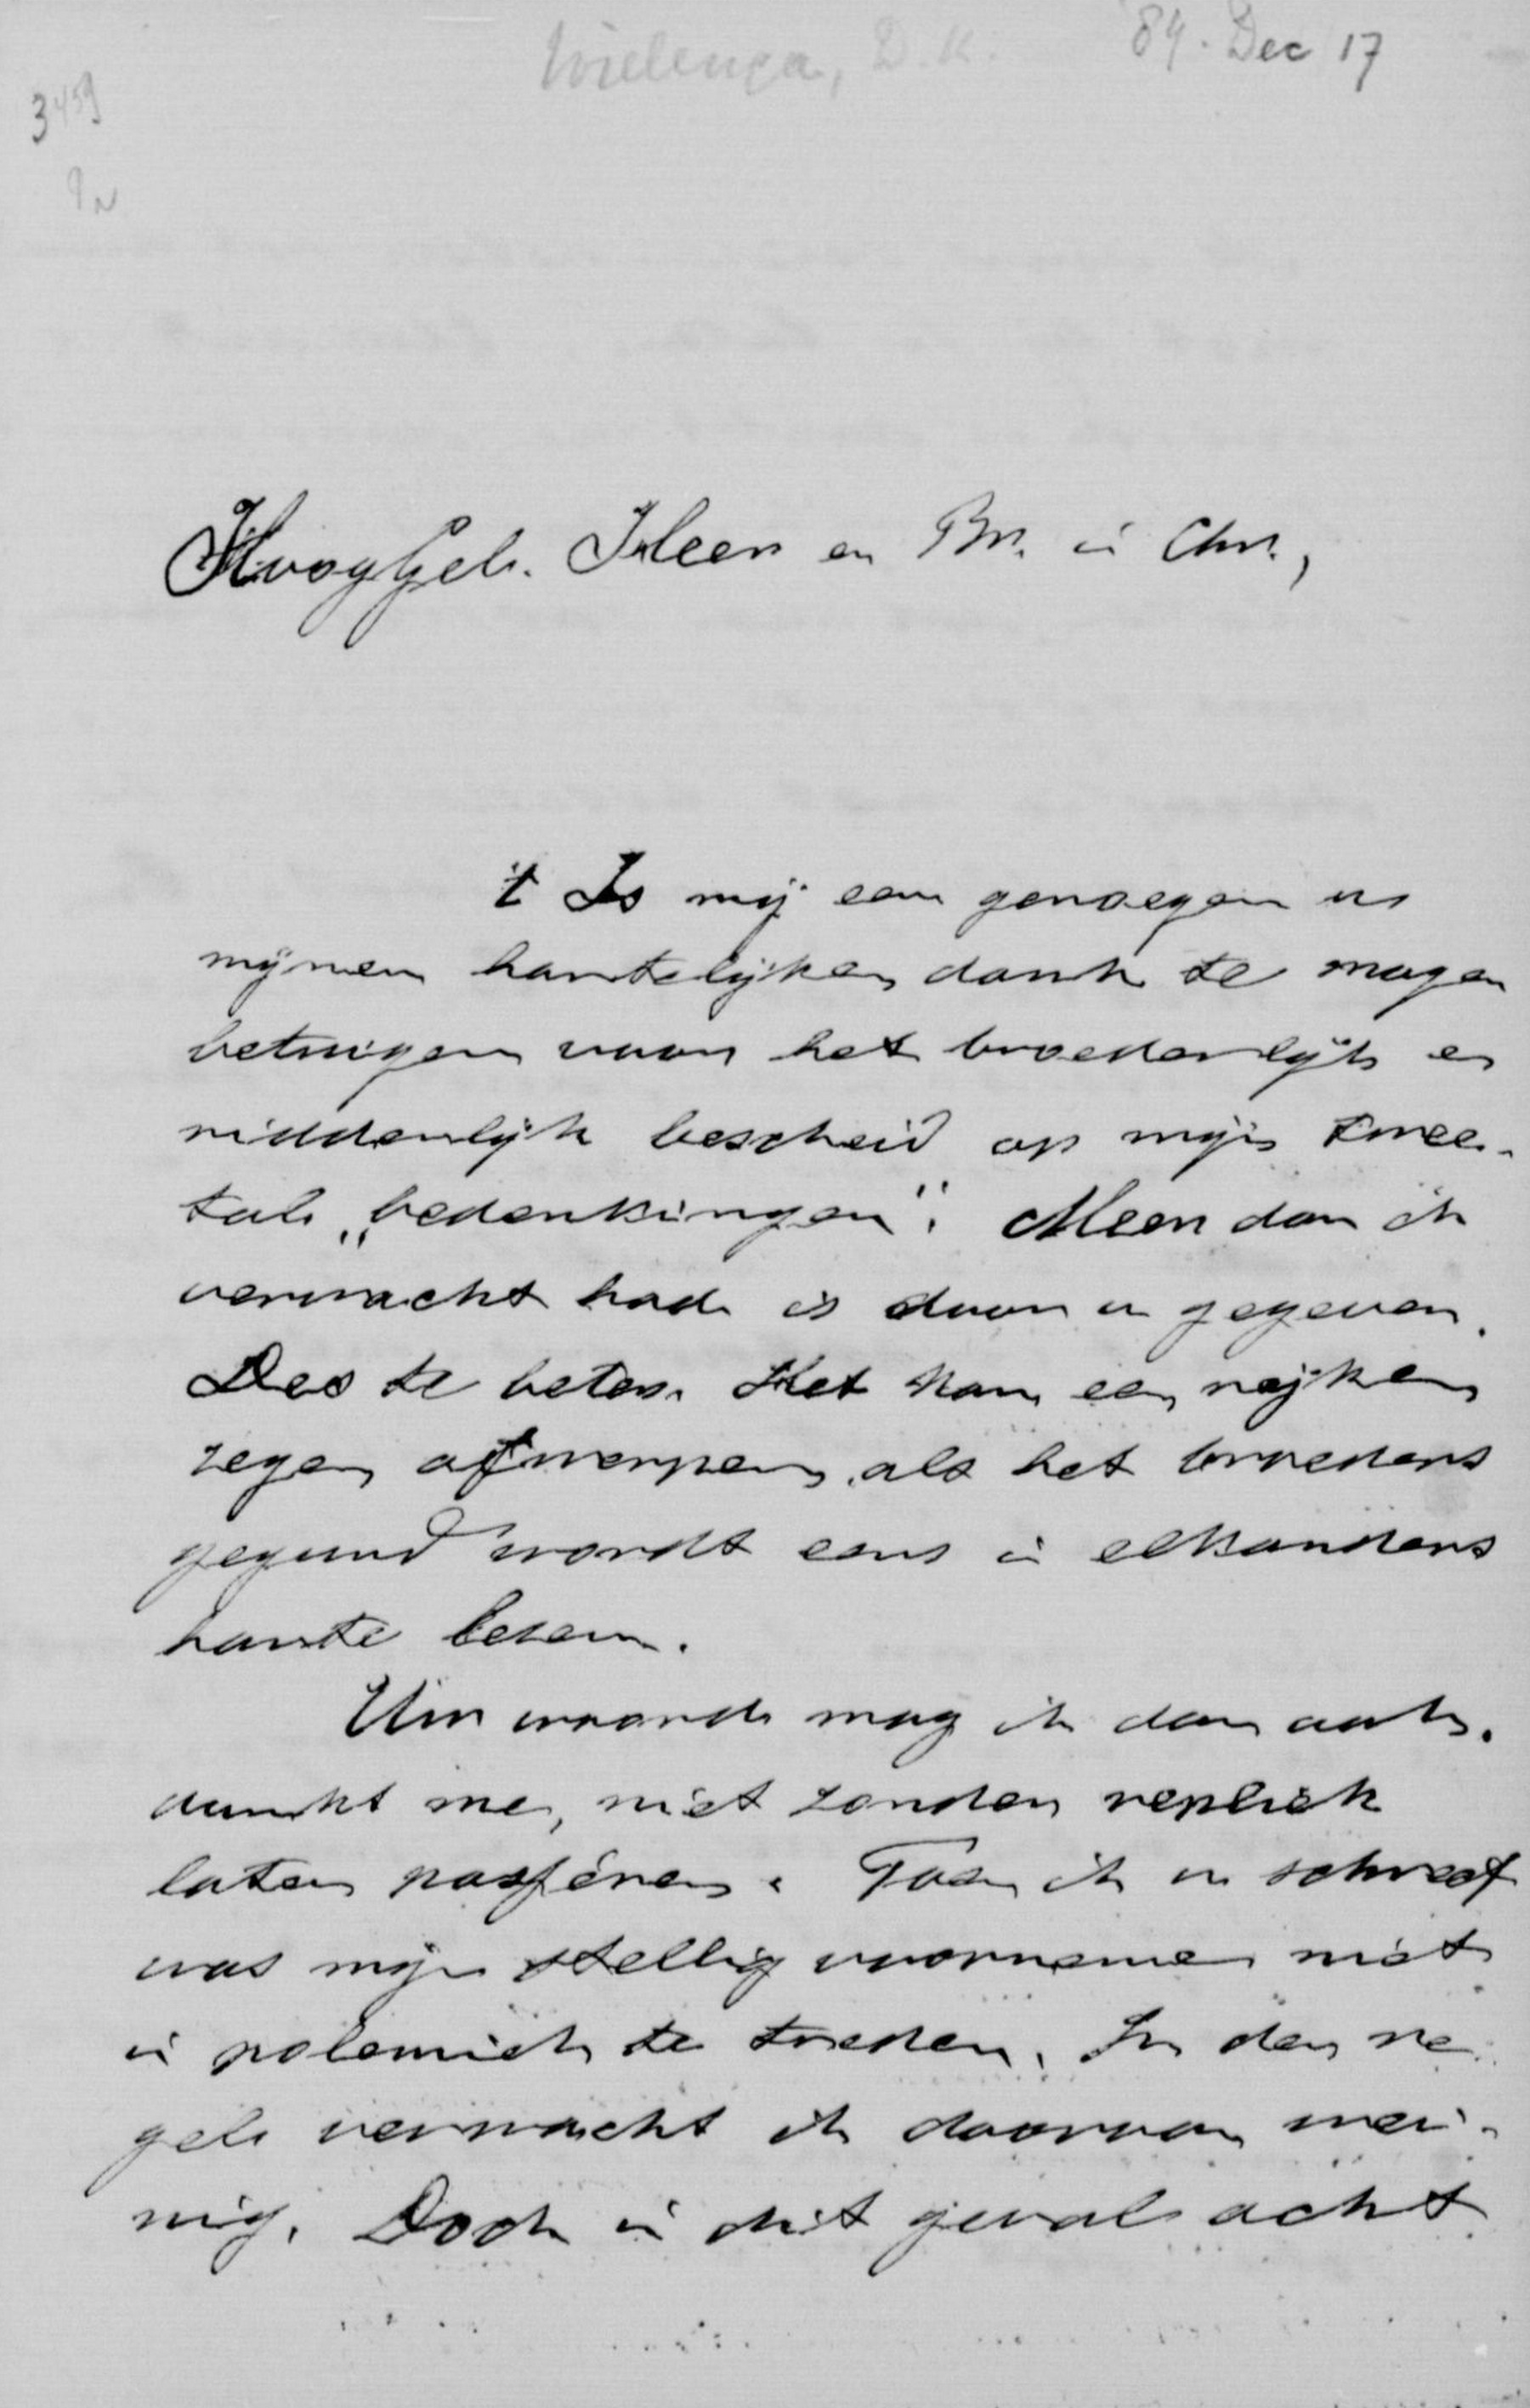 Wielenga, D.K. 84. Dec 17
3459
HoogGel. Heer en Br. in Chr.,
't Is mij een genoegen u
mijnen hartelijken dank te mogen
betuigen voor het broederlijk en
ridderlijk bescheid op mijn twee-
tal „bedenkingen". Meer dan ik
verwacht had is door u gegeven.
Des te beter. Het kan een rijken
zegen afwerpen, als het broeders
gegund wordt eens in elkanders
harte lezen.
Uw woord mag ik dan ook,
dunkt me, niet zonder repliek
laten passéren. Toen ik u schreef
was mijn stellig voornemen niet
in polemiek te treden. In den re-
gel verwacht ik daarvan wei-
nig. Doch in dit geval acht